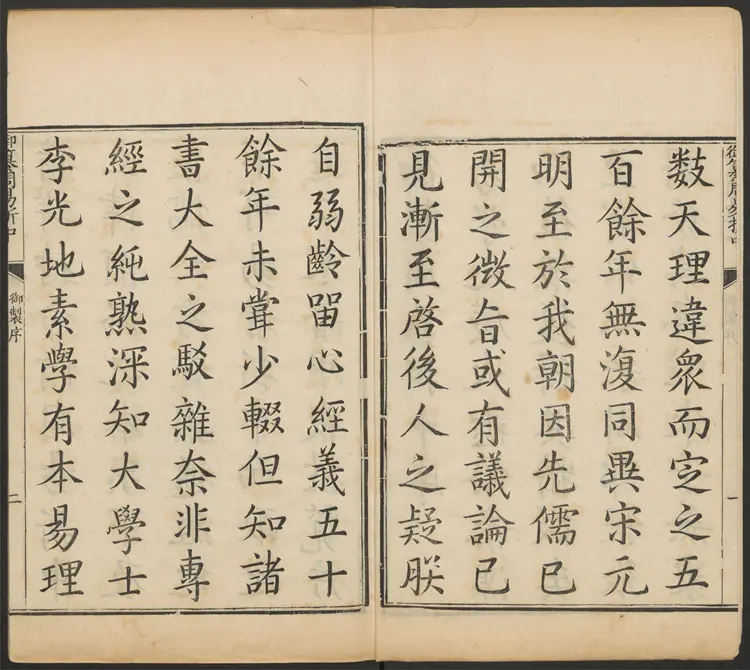 數天理違衆而定之五
百餘年無復同異宋元
明至於我朝因先儒已
開之微旨或有議論已
見漸至啓後人之疑朕
自弱齡留心經義五十
餘年未嘗少輟但知諸
書大全之駁雜奈非專
經之純熟深知大學士
李光地素學有本易理
御製序
二